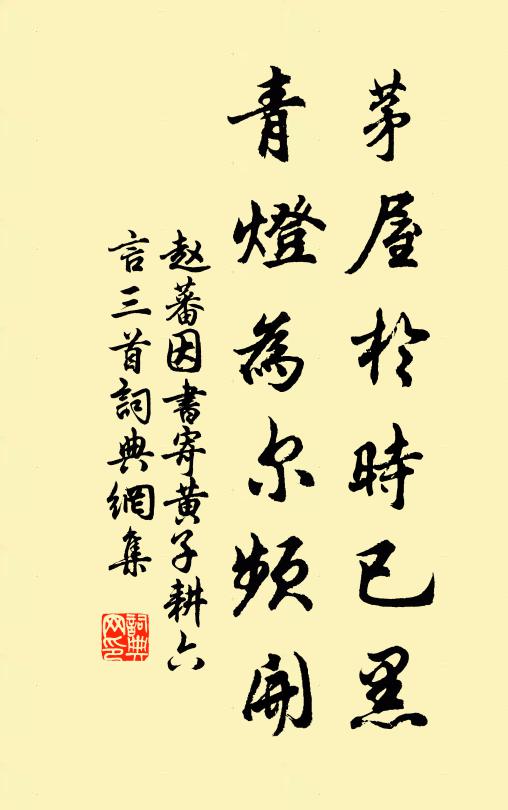 茅屋於時已黑
青燈為尔頻開
赵蕃因書寄黄子耕六
言三首詞典網集
詞典
网印